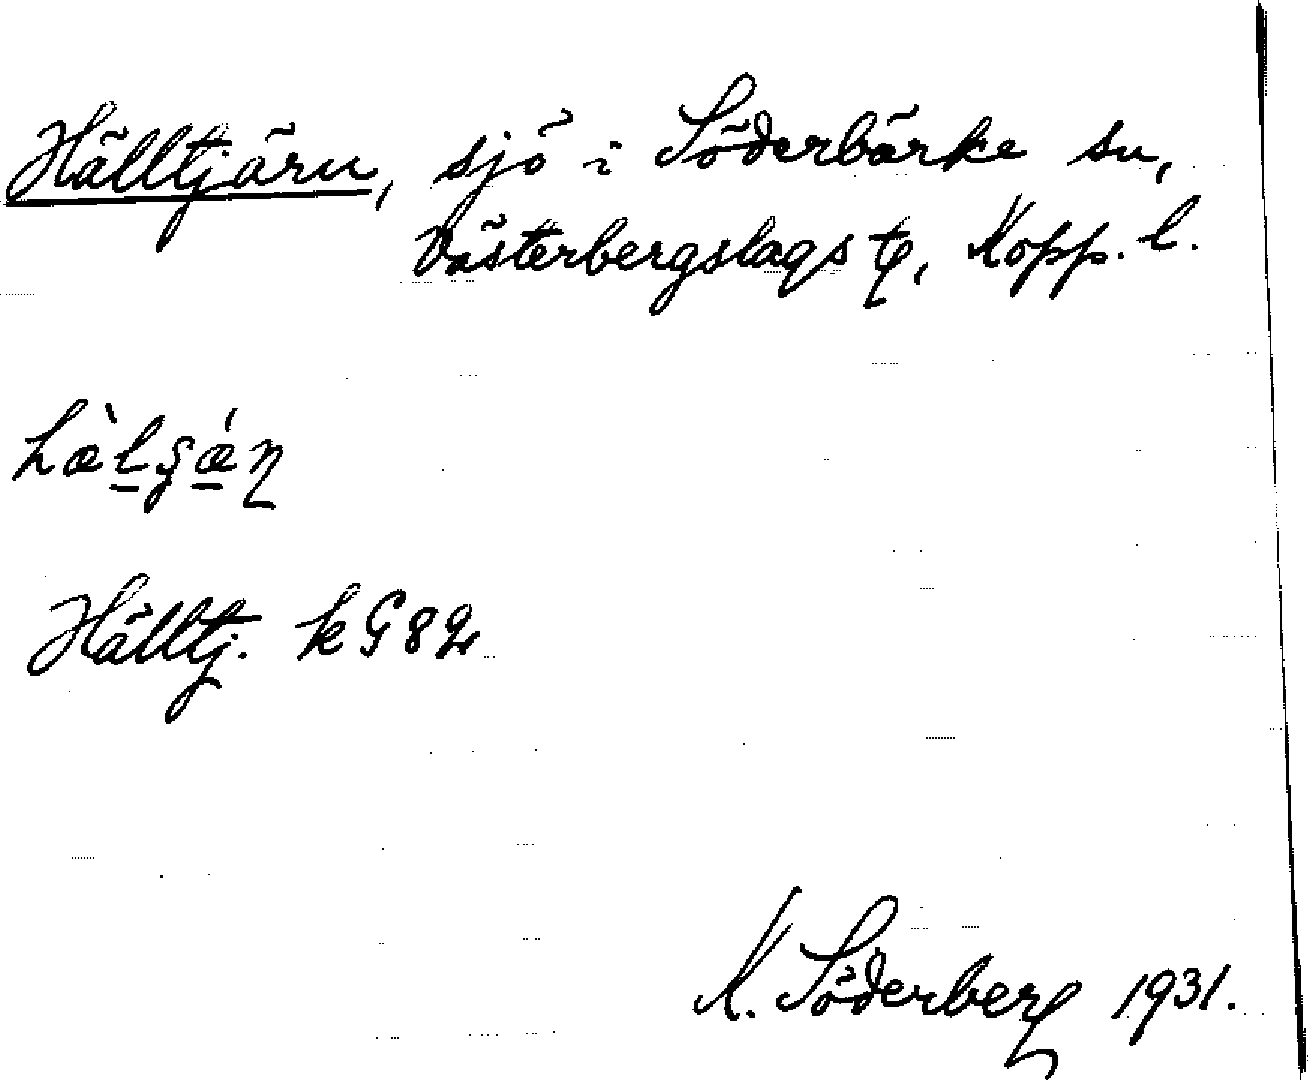 Hälltjärn, sjö i Söderbärke sn,
Västerbergslags tg, Kopp. l.
hæ̀lʂǽɳ
Hälltj. k G 82
K. Söderberg 1931.